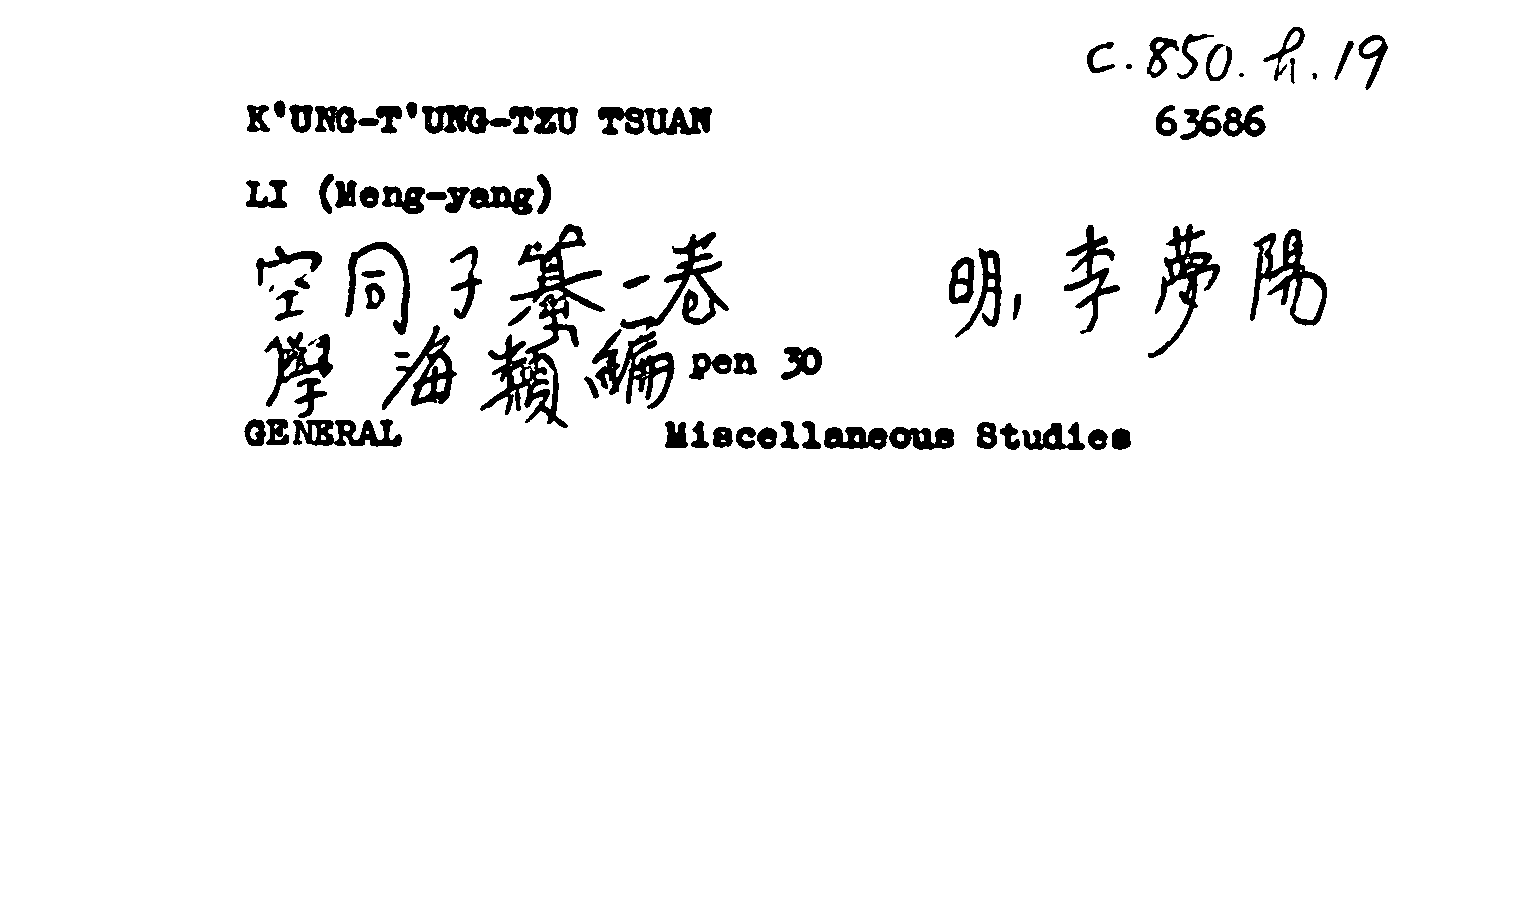 C. 850. h. 19
K'UNG-T'UNG-TZU TSUAN 63686
LI (Meng-yang)
空同子纂二卷 明, 李夢陽
學海類編 pen 30
GENERAL Miscellaneous Studies